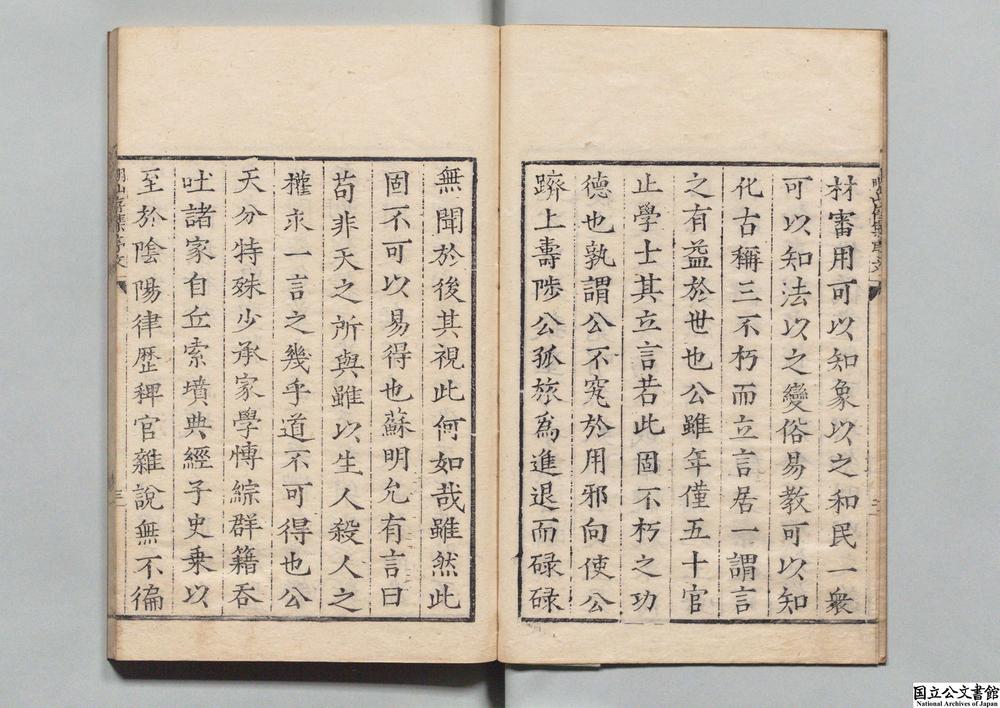 材審用可以知象以之和民一衆
可以知法以之變俗易教可以知
化古稱三不朽而立言居一謂言
之有益於世也公雖年僅五十官
止學士其立言若此固不朽之功
德也孰謂公不究於用邪向使公
躋上壽陟公孤旅爲進退而碌碌
無聞於後其視此何如哉雖然此
固不可以易得也蘇明允有言曰
苟非天之所與雖以生人殺人之
權求一言之幾乎道不可得也公
天分特殊少承家學博綜群籍吞
吐諸家自丘索墳典經子史乗以
至於陰陽律歴稗官雜說無不徧
三
国立公文書館
National Archives of Japan